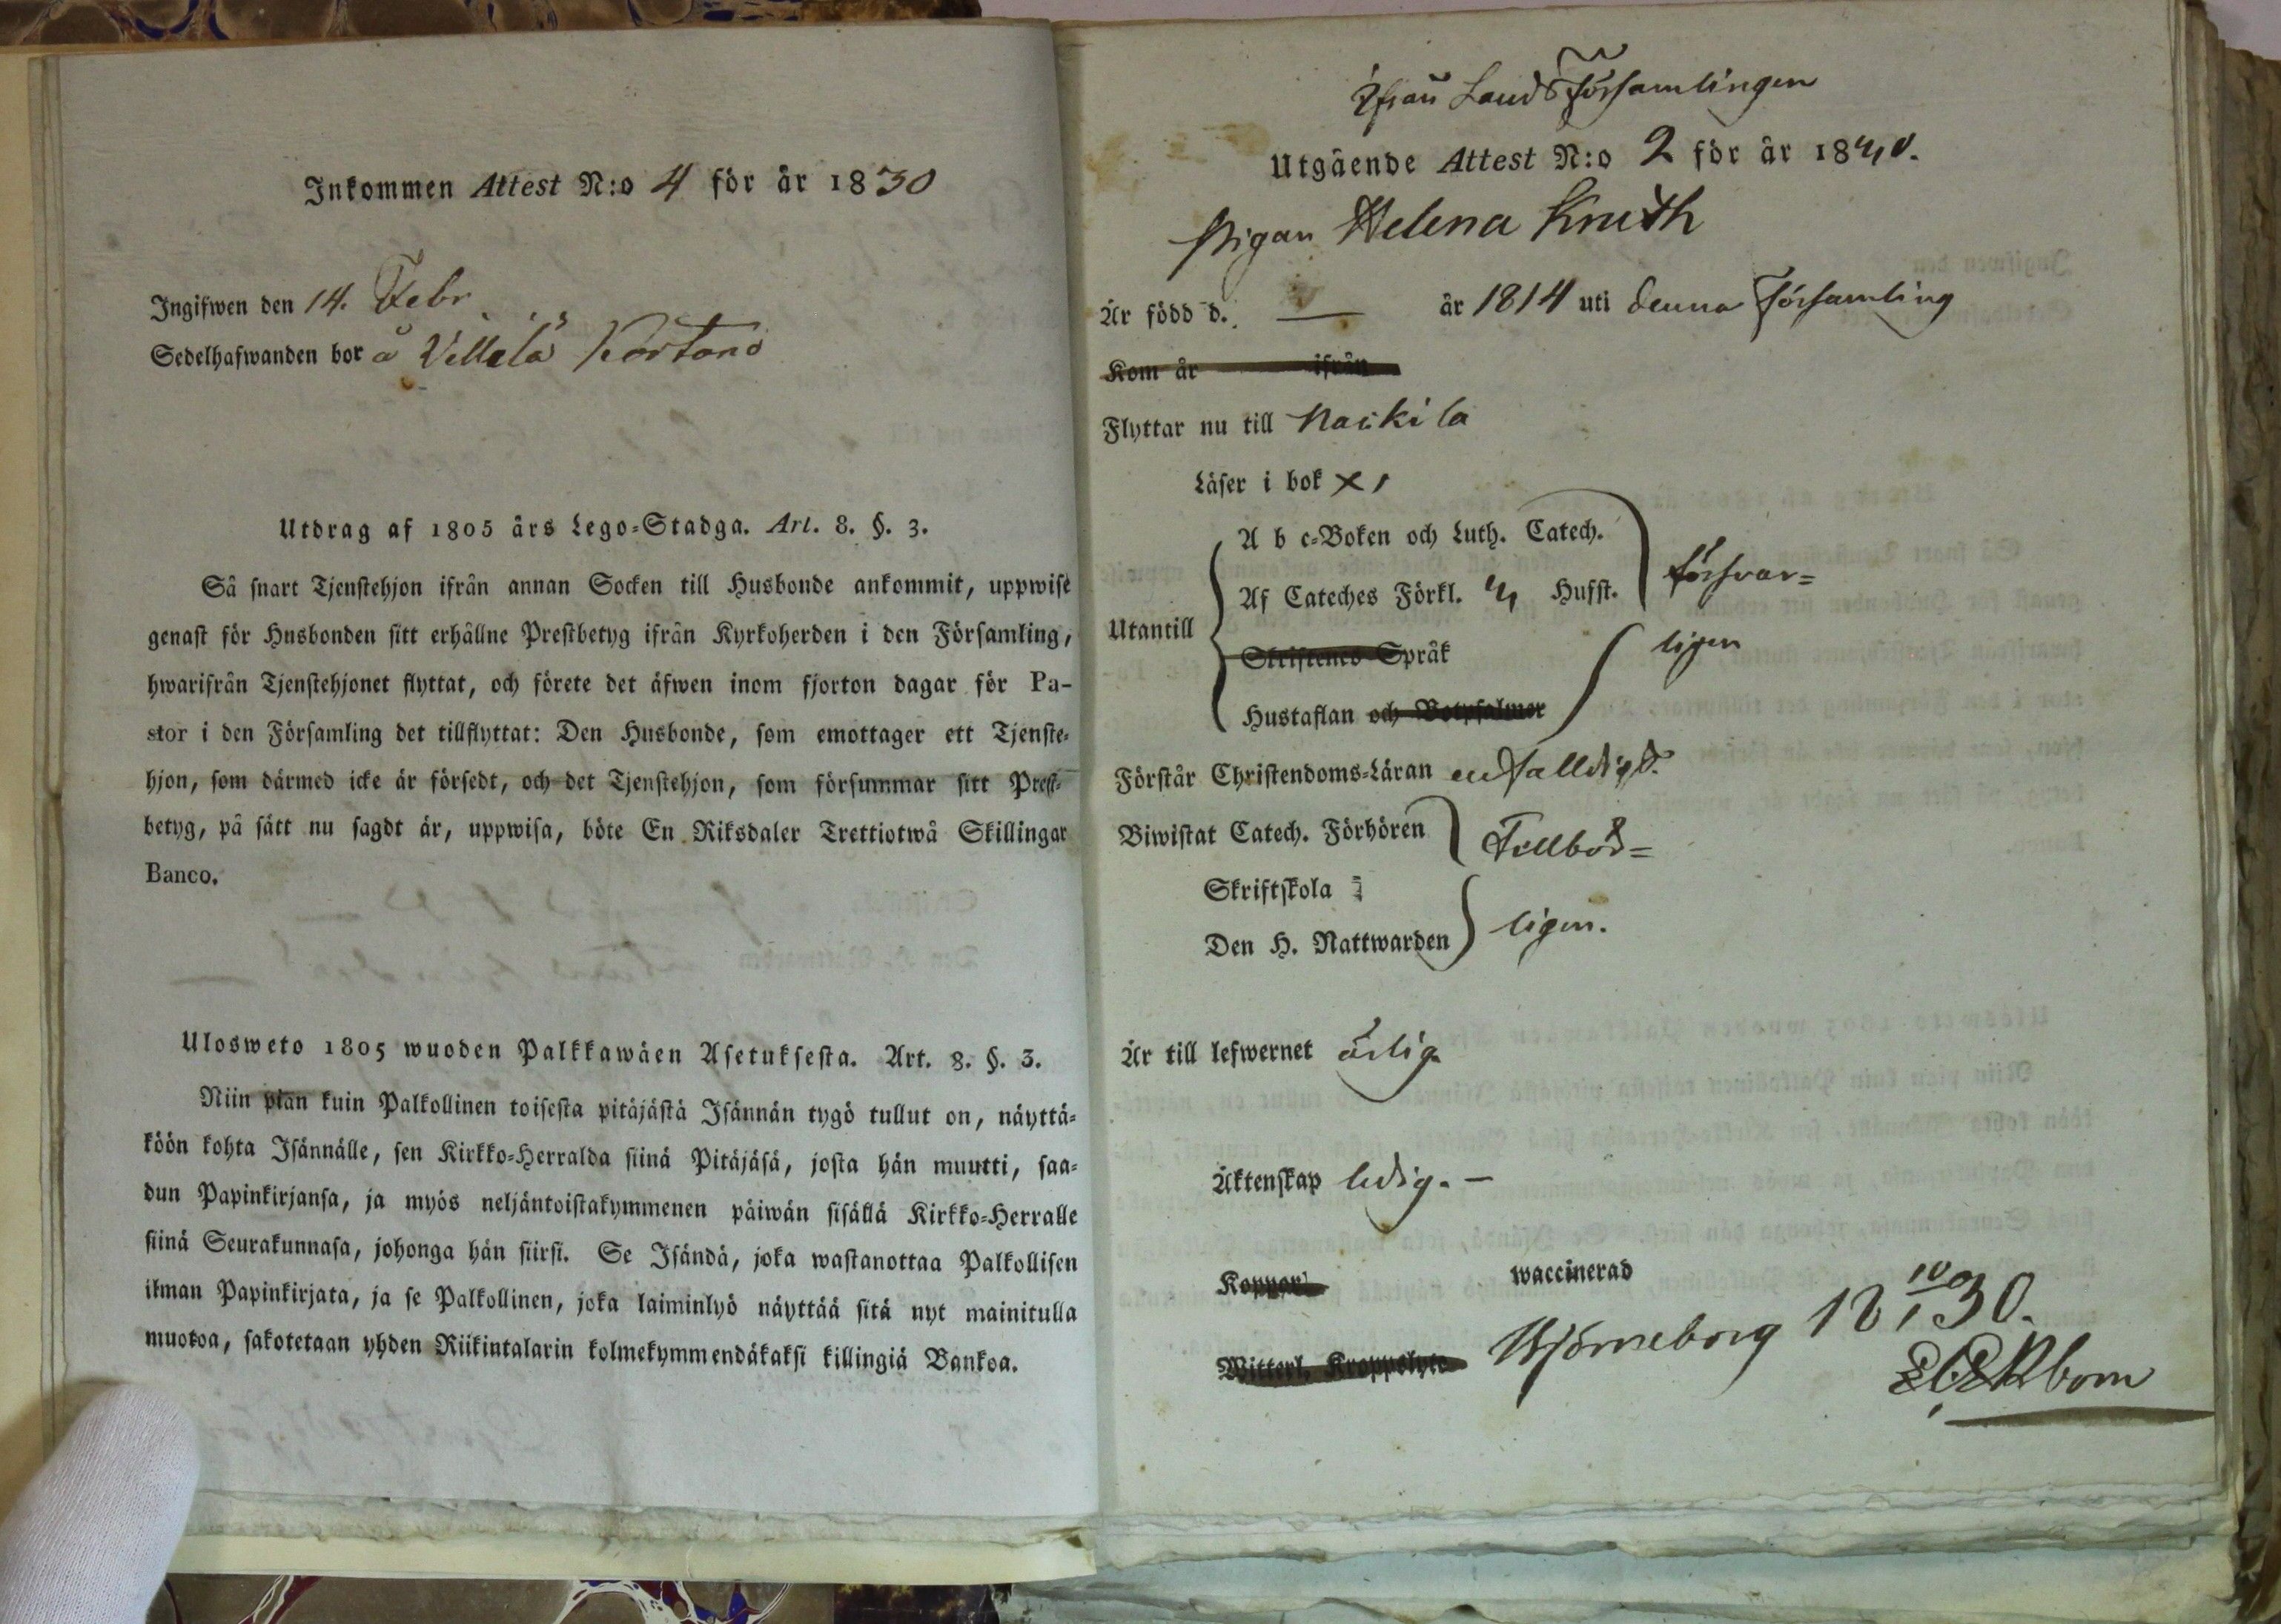 Inkommen Attest N:o 4 för år 1830
Ingifwen den 14. Febr.
Sedelhafwanden bor å Villelä Kortano
Utdrag af 1805 års Lego-Stadga. Art. 8. §. 3.
Så snart Tjenstehjon ifrån annan Socken till Husbonde ankommit, uppwise
genast för Husbonden sitt erhållne Prestbetyg ifrån Kyrkoherden i den Församling,
hwarifrån Tjenstehjonet flyttat, och förete det äfwen inom fjorton dagar för Pa-
stor i den Församling det tillflyttat: Den Husbonde, som emottager ett Tjenste-
hjon, som därmed icke är försedt, och det Tjenstehjon, som försummar sitt Prest-
betyg, på sätt nu sagdt är, uppwisa, böte En Riksdaler Trettiotwå Skillingar
Banco.
Ulosweto 1805 wuoden Palkkawäen Asetuksesta. Art. 8. §. 3.
Niin pian kuin Palkollinen toisesta pitäjästä Isännän tygö tullut on, näyttä-
köön kohta Isännälle, sen Kirkko-Herralda siinä Pitäjäsä, josta hän muutti, saa-
dun Papinkirjansa, ja myös neljäntoistakymmenen päiwän sisällä Kirkko-Herralle
siinä Seurakunnasa, johonga hän siirsi. Se Isändä, joka wastanottaa Palkollisen
ilman Papinkirjata, ja se Palkollinen, joka laiminlyö näyttää sitä nyt mainitulla
muotoa, sakotetaan yhden Riikintalarin kolmekymmendäkaksi killingiä Bankoa.
Ifrån Lands Församlingen
Utgående Attest N:o 2 för år 18
Pigan Helena Knuth
Är född d. — år 1814 uti denna Församling
Kom år ifrån
Flyttar nu till Nackila
Läser i bok
A b c-Boken och Luth. Catech.
Af Cateches Förkl. Husst.
försvar=
Utantill
Skriftenes Språk
ligen
Hustaflan och Botpsalmer
Förstår Christendoms-Läran enfalldigt.
Biwistat Catech. Förhören
Tillbör=
Skriftskola
Den H. Nattwarden
ligen.
Är till lefwernet ärlig
Äktenskap ledig. —
Koppor waccinerad
Witterl. Kroppslyte Björneborg 18 10/1 30.